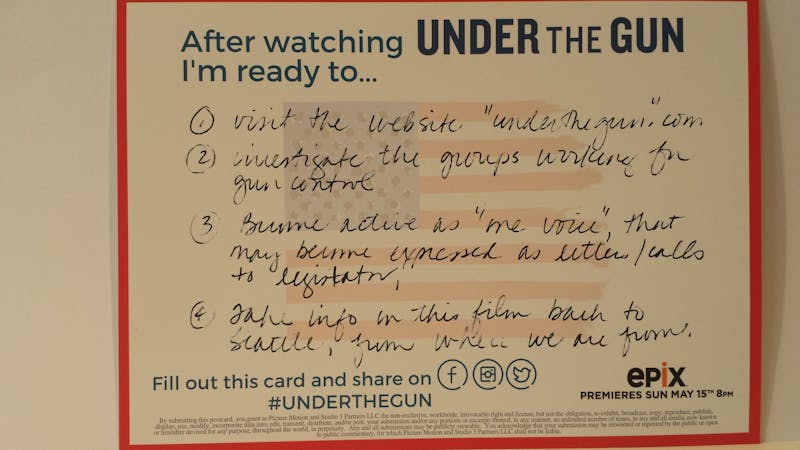 After watching UNDER THE GUN
I'm ready to...
① visit the website "underthegun." com
② investigate the groups working for
gun control
③ Become active as "one voice", that
may become expressed as letters/calls
to legislator,
④ Take info in this film back to
Seattle, from where we are from.
Fill out this card and share on
#UNDERTHEGUN
epix
PREMIERES SUN MAY 15TH 8PM
By submitting this postcard, you grant to Picture Motion and Studio 3 Partners LLC the non-exclusive, worldwide, irrevocable right and license, but not the obligation, to exhibit, broadcast, copy, reproduce, publish,
display, use, modify, incorporate data into, edit, transmit, distribute, and/or post your submission and/or any portions or excerpts thereof, in any manner, an unlimited number of times, in any and all media, now known
or hereafter devised for any purpose, throughout the world, in perpetuity. Any and all submissions may be publicly viewable. You acknowledge that your submission may be retweeted or reposted by the public or open
to public commentary, for which Picture Motion and Studio 3 Partners LLC shall not be liable.